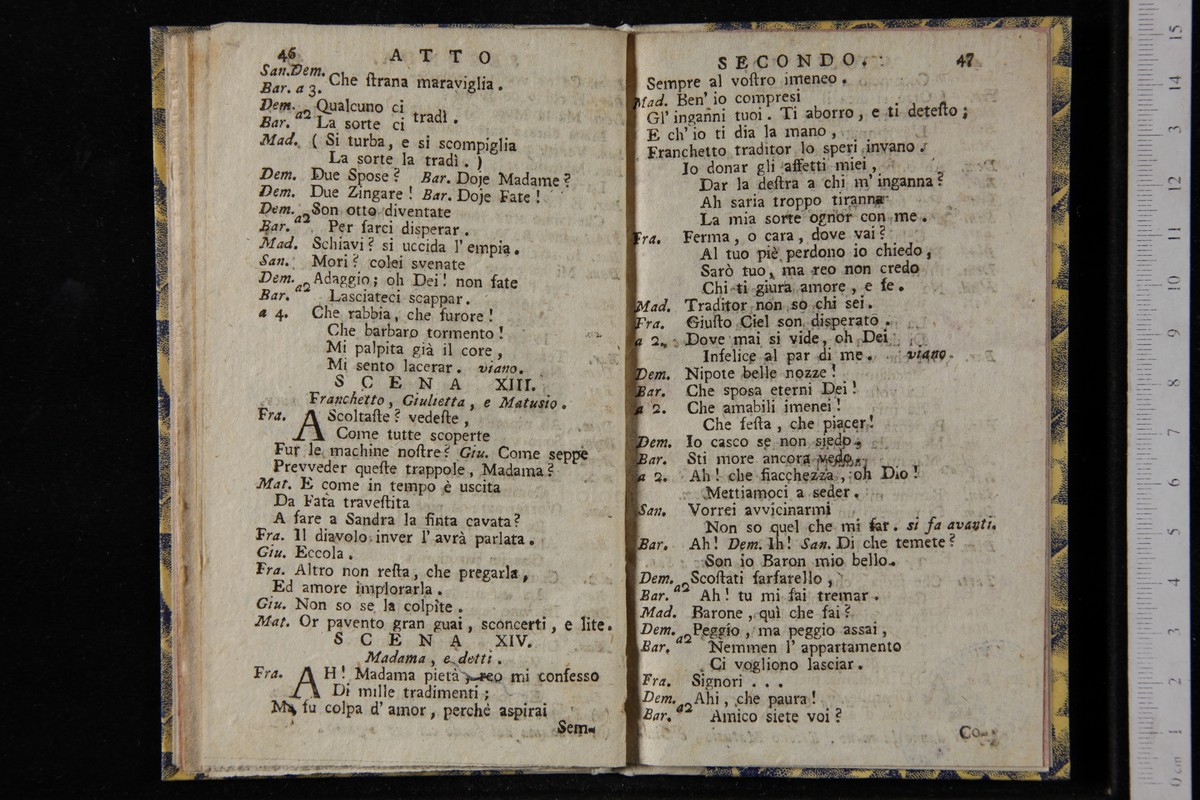 46 ATTO
San.Dem.
Bar. a 3. Che ſtrana maraviglia.
Dem. a2 Qualcuno ci
Bar. La sorte ci tradì.
Mad. ( Si turba, e si scompiglia
La sorte la tradì. )
Dem. Due Spose? Bar. Doje Madame?
Dem. Due Zingare! Bar. Doje Fate!
Dem. a2 Son otto diventate
Bar. Per farci disperar.
Mad. Schiavi? si uccida l' empia.
San. Mori? colei svenate
Dem. a2 Adaggio; oh Dei! non fate
Bar. Lasciateci scappar.
a 4. Che rabbia, che furore!
Che barbaro tormento!
Mi palpita già il core,
Mi sento lacerar. viano.
SCENA XIII.
Franchetto, Giulietta, e Matusio.
Fra. AScoltaſte? vedeſte,
Come tutte scoperte
Fur le machine noſtre? Giu. Come seppe
Prevveder queſte trappole, Madama?
Mat. E come in tempo è uscita
Da Fata traveſtita
A fare a Sandra la finta cavata?
Fra. Il diavolo inver l' avrà parlata.
Giu. Eccola.
Fra. Altro non reſta, che pregarla,
Ed amore implorarla.
Giu. Non so se la colpite.
Mat. Or pavento gran guai, sconcerti, e lite.
SCENA XIV.
Madama, e detti.
Fra. AH! Madama pietà, reo mi confesso
Di mille tradimenti;
Ma fu colpa d' amor, perchè aspirai
Sem-
SECONDO. 47
Sempre al voſtro imeneo.
Mad. Ben' io compresi
Gl' inganni tuoi. Ti aborro, e ti deteſto;
E ch' io ti dia la mano,
Franchetto traditor lo speri invano.
Io donar gli affetti miei,
Dar la deſtra a chi m' inganna?
Ah saria troppo tiranna
La mia sorte ognor con me.
Fra. Ferma, o cara, dove vai?
Al tuo piè perdono io chiedo,
Sarò tuo, ma reo non credo
Chi ti giura amore, e fe.
Mad. Traditor non so chi sei.
Fra. Giuſto Ciel son disperato.
a 2. Dove mai si vide, oh Dei
Infelice al par di me. viano.
Dem. Nipote belle nozze!
Bar. Che sposa eterni Dei!
a 2. Che amabili imenei!
Che feſta, che piacer!
Dem. Io casco se non siedo.
Bar. Sti more ancora vedo.
a 2. Ah! che fiacchezza, oh Dio!
Mettiamoci a seder.
San. Vorrei avvicinarmi
Non so quel che mi far. si fa avanti.
Bar. Ah! Dem. Ih! San. Di che temete?
Son io Baron mio bello.
Dem. a2 Scoſtati farfarello,
Bar. Ah! tu mi fai tremar.
Mad. Barone, quì che fai?
Dem. a2 Peggio, ma peggio assai,
Bar. Nemmen l' appartamento
Ci vogliono lasciar.
Fra. Signori . . .
Dem. a2 Ahi, che paura!
Bar. Amico siete voi?
Co-